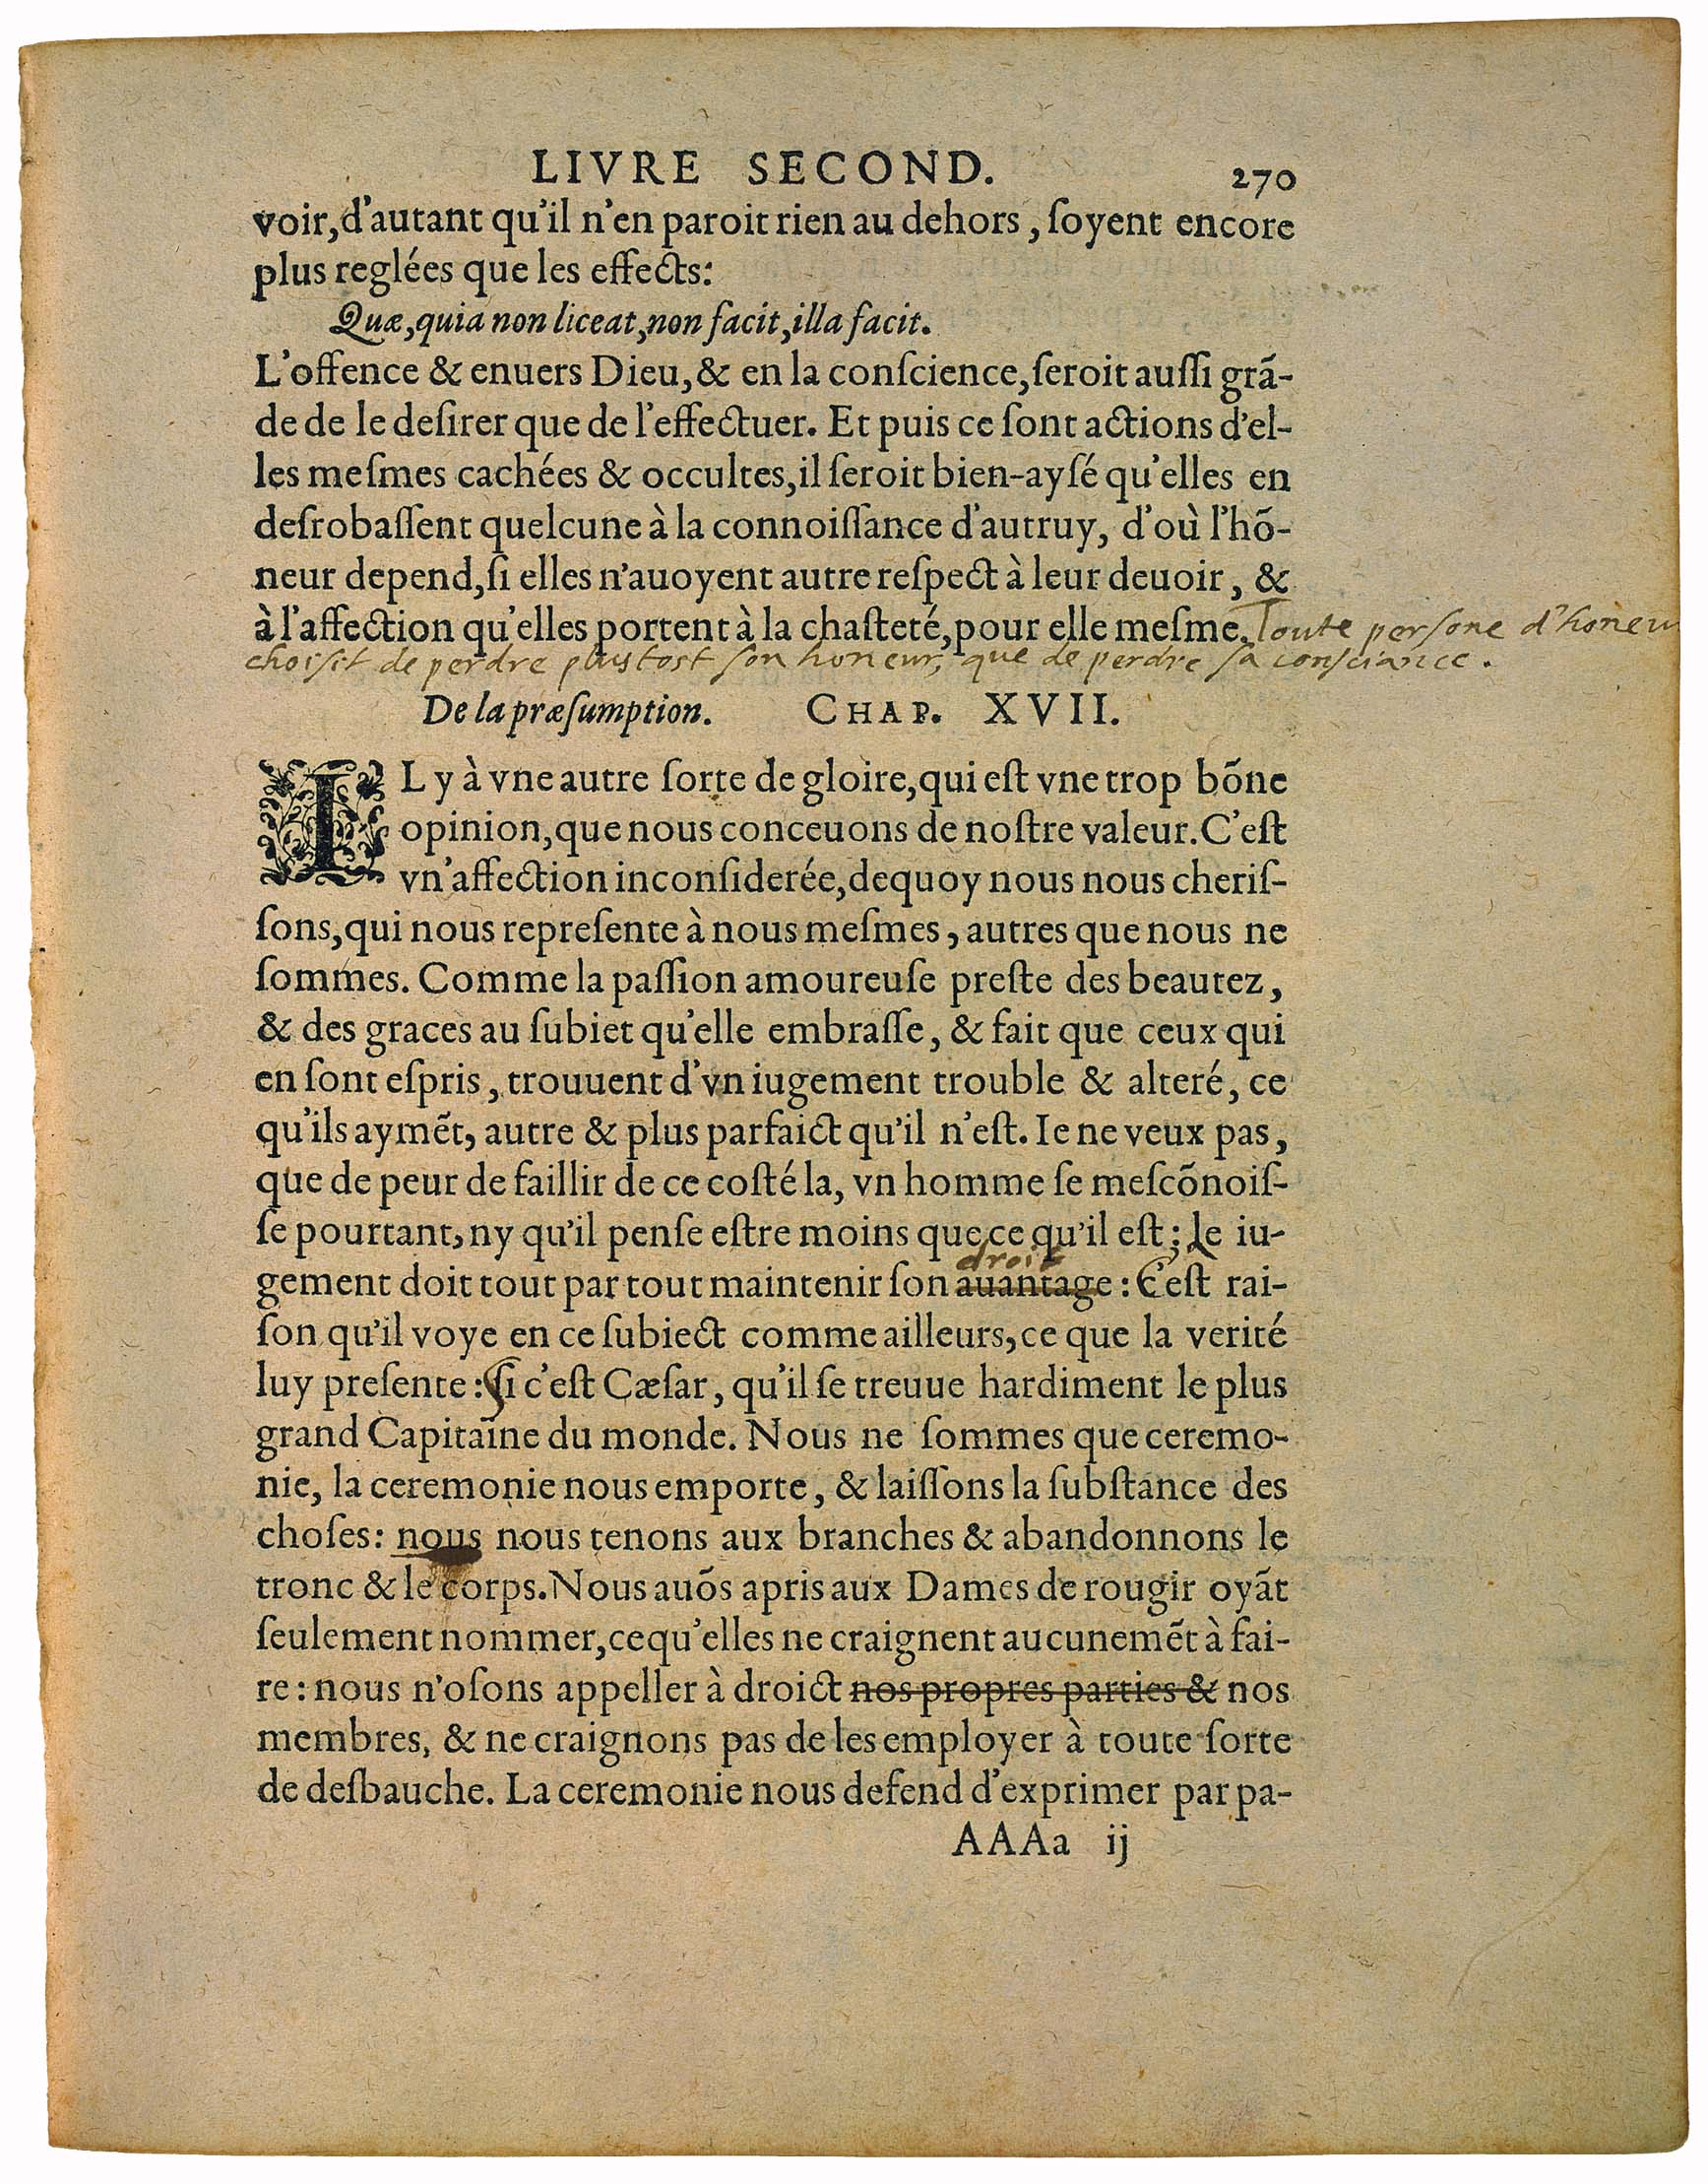 LIVRE SECOND. 270
voir, d'autant qu'il n'en paroit rien au dehors, ſoyent encore
plus reglées que les effects:
Quæ, quia non liceat, non facit, illa facit.
L'offence & enuers Dieu, & en la conſcience, ſeroit auſſi grã-
de de le deſirer que de l'effectuer. Et puis ce ſont actions d'el-
les meſmes cachées & occultes, il ſeroit bien-ayſé qu'elles en
deſrobaſſent quelcune à la connoiſſance d'autruy, d'où l'hõ-
neur depend, ſi elles n'auoyent autre reſpect à leur deuoir, &
à l'affection qu'elles portent à la chaſteté, pour elle meſme. Toute perſone d'honeur
choiſit de perdre pluſtoſt ſon honeur, que de perdre ſa conſciance.
De la præſumption. CHAP. XVII.
IL y à vne autre ſorte de gloire, qui eſt vne trop bõne
opinion, que nous conceuons de noſtre valeur. C'eſt
vn'affection inconſiderée, dequoy nous nous cheriſ-
ſons, qui nous repreſente à nous meſmes, autres que nous ne
ſommes. Comme la paſſion amoureuſe preſte des beautez,
& des graces au ſubiet qu'elle embraſſe, & fait que ceux qui
en ſont eſpris, trouuent d'vn iugement trouble & alteré, ce
qu'ils aymẽt, autre & plus parfaict qu'il n'eſt. Ie ne veux pas,
que de peur de faillir de ce coſté la, vn homme ſe meſcõnoiſ-
ſe pourtant, ny qu'il penſe eſtre moins que ce qu'il eſt; Le iu-
droit
gement doit tout par tout maintenir ſon auantage: C'eſt rai-
ſon qu'il voye en ce ſubiect comme ailleurs, ce que la verité
luy preſente: Si c'eſt Cæſar, qu'il ſe treuue hardiment le plus
grand Capitaine du monde. Nous ne ſommes que ceremo-
nie, la ceremonie nous emporte, & laiſſons la ſubſtance des
choſes: nous nous tenons aux branches & abandonnons le
tronc & le corps. Nous auõs apris aux Dames de rougir oyãt
ſeulement nommer, ce qu'elles ne craignent aucunemẽt à fai-
re: nous n'oſons appeller à droict nos propres parties & nos
membres, & ne craignons pas de les employer à toute ſorte
de deſbauche. La ceremonie nous defend d'exprimer par pa-
AAAa ij